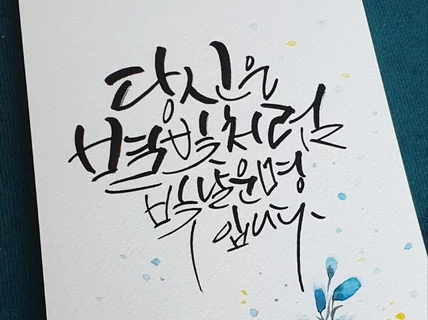 당신은
별빛처럼
빛날운명
입니다.